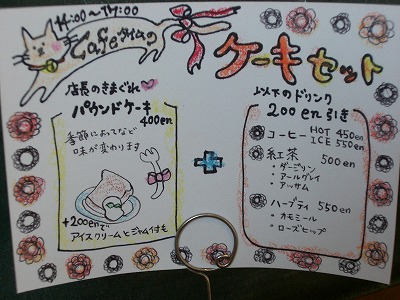 14:00〜17:00
Cafeタイムの
ケーキセット
店長のきまぐれ
パウンドケーキ
400en
季節によってなど
味が変わります
+200enで
アイスクリームとジャム付も
+
以下のドリンク
200en引き
コーヒー HOT 450en
ICE 550en
紅茶 500en
・ダージリン
・アールグレイ
・アッサム
ハーブティ 550en
・カモミール
・ローズヒップ